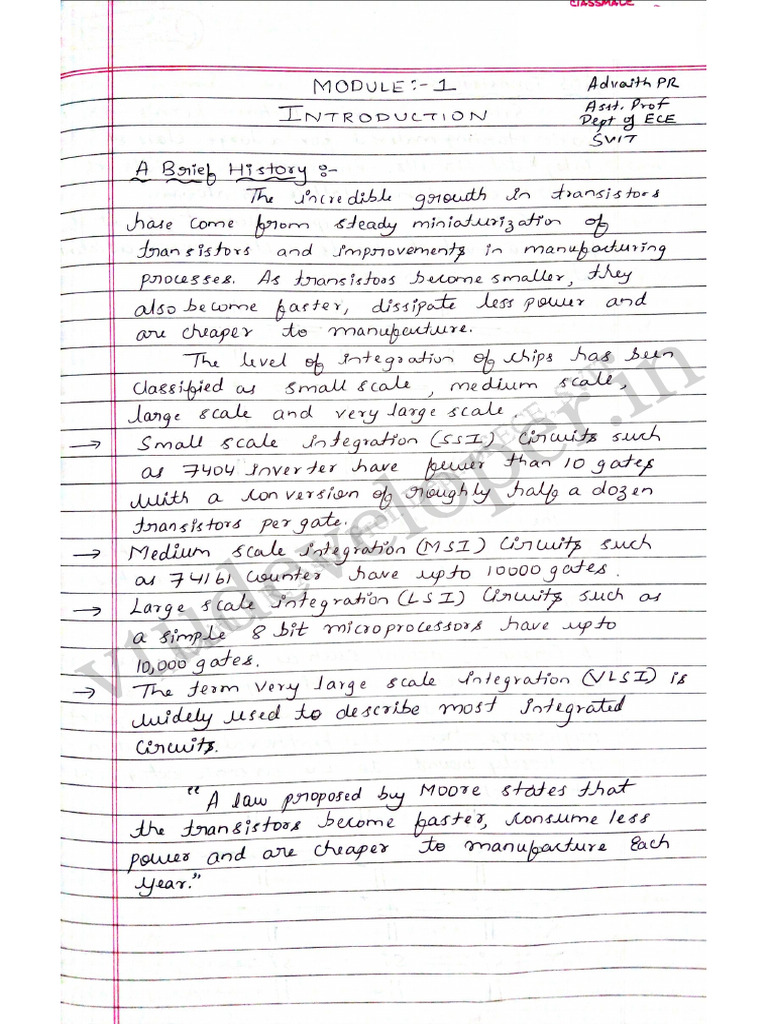 CLASSMATE
MODULE:-1
Advaith PR
INTRODUCTION
Asst. Prof
Dept of ECE
SVIT
A Brief History :-
The incredible growth in transistors
hase come from steady miniaturization of
transistors and improvements in manufacturing
processes. As transistors become smaller, they
also become faster, dissipate less power and
are cheaper to manufacture.
The level of integration of chips has been
classified as small scale, medium scale,
large scale and very large scale.
→ Small scale integration (SSI) Circuits such
as 7404 inverter have fewer than 10 gates
with a conversion of roughly half a dozen
transistors per gate.
→ Medium scale integration (MSI) Circuits such
as 74161 Counter have upto 10000 gates.
→ Large scale integration (LSI) Circuits such as
a simple 8 bit microprocessors have upto
10,000 gates.
→ The term very large scale integration (VLSI) is
widely used to describe most integrated
Circuits.
"A law proposed by Moore states that
the transistors become faster, consume less
power and are cheaper to manufacture each
year."
vtudeveloper.in